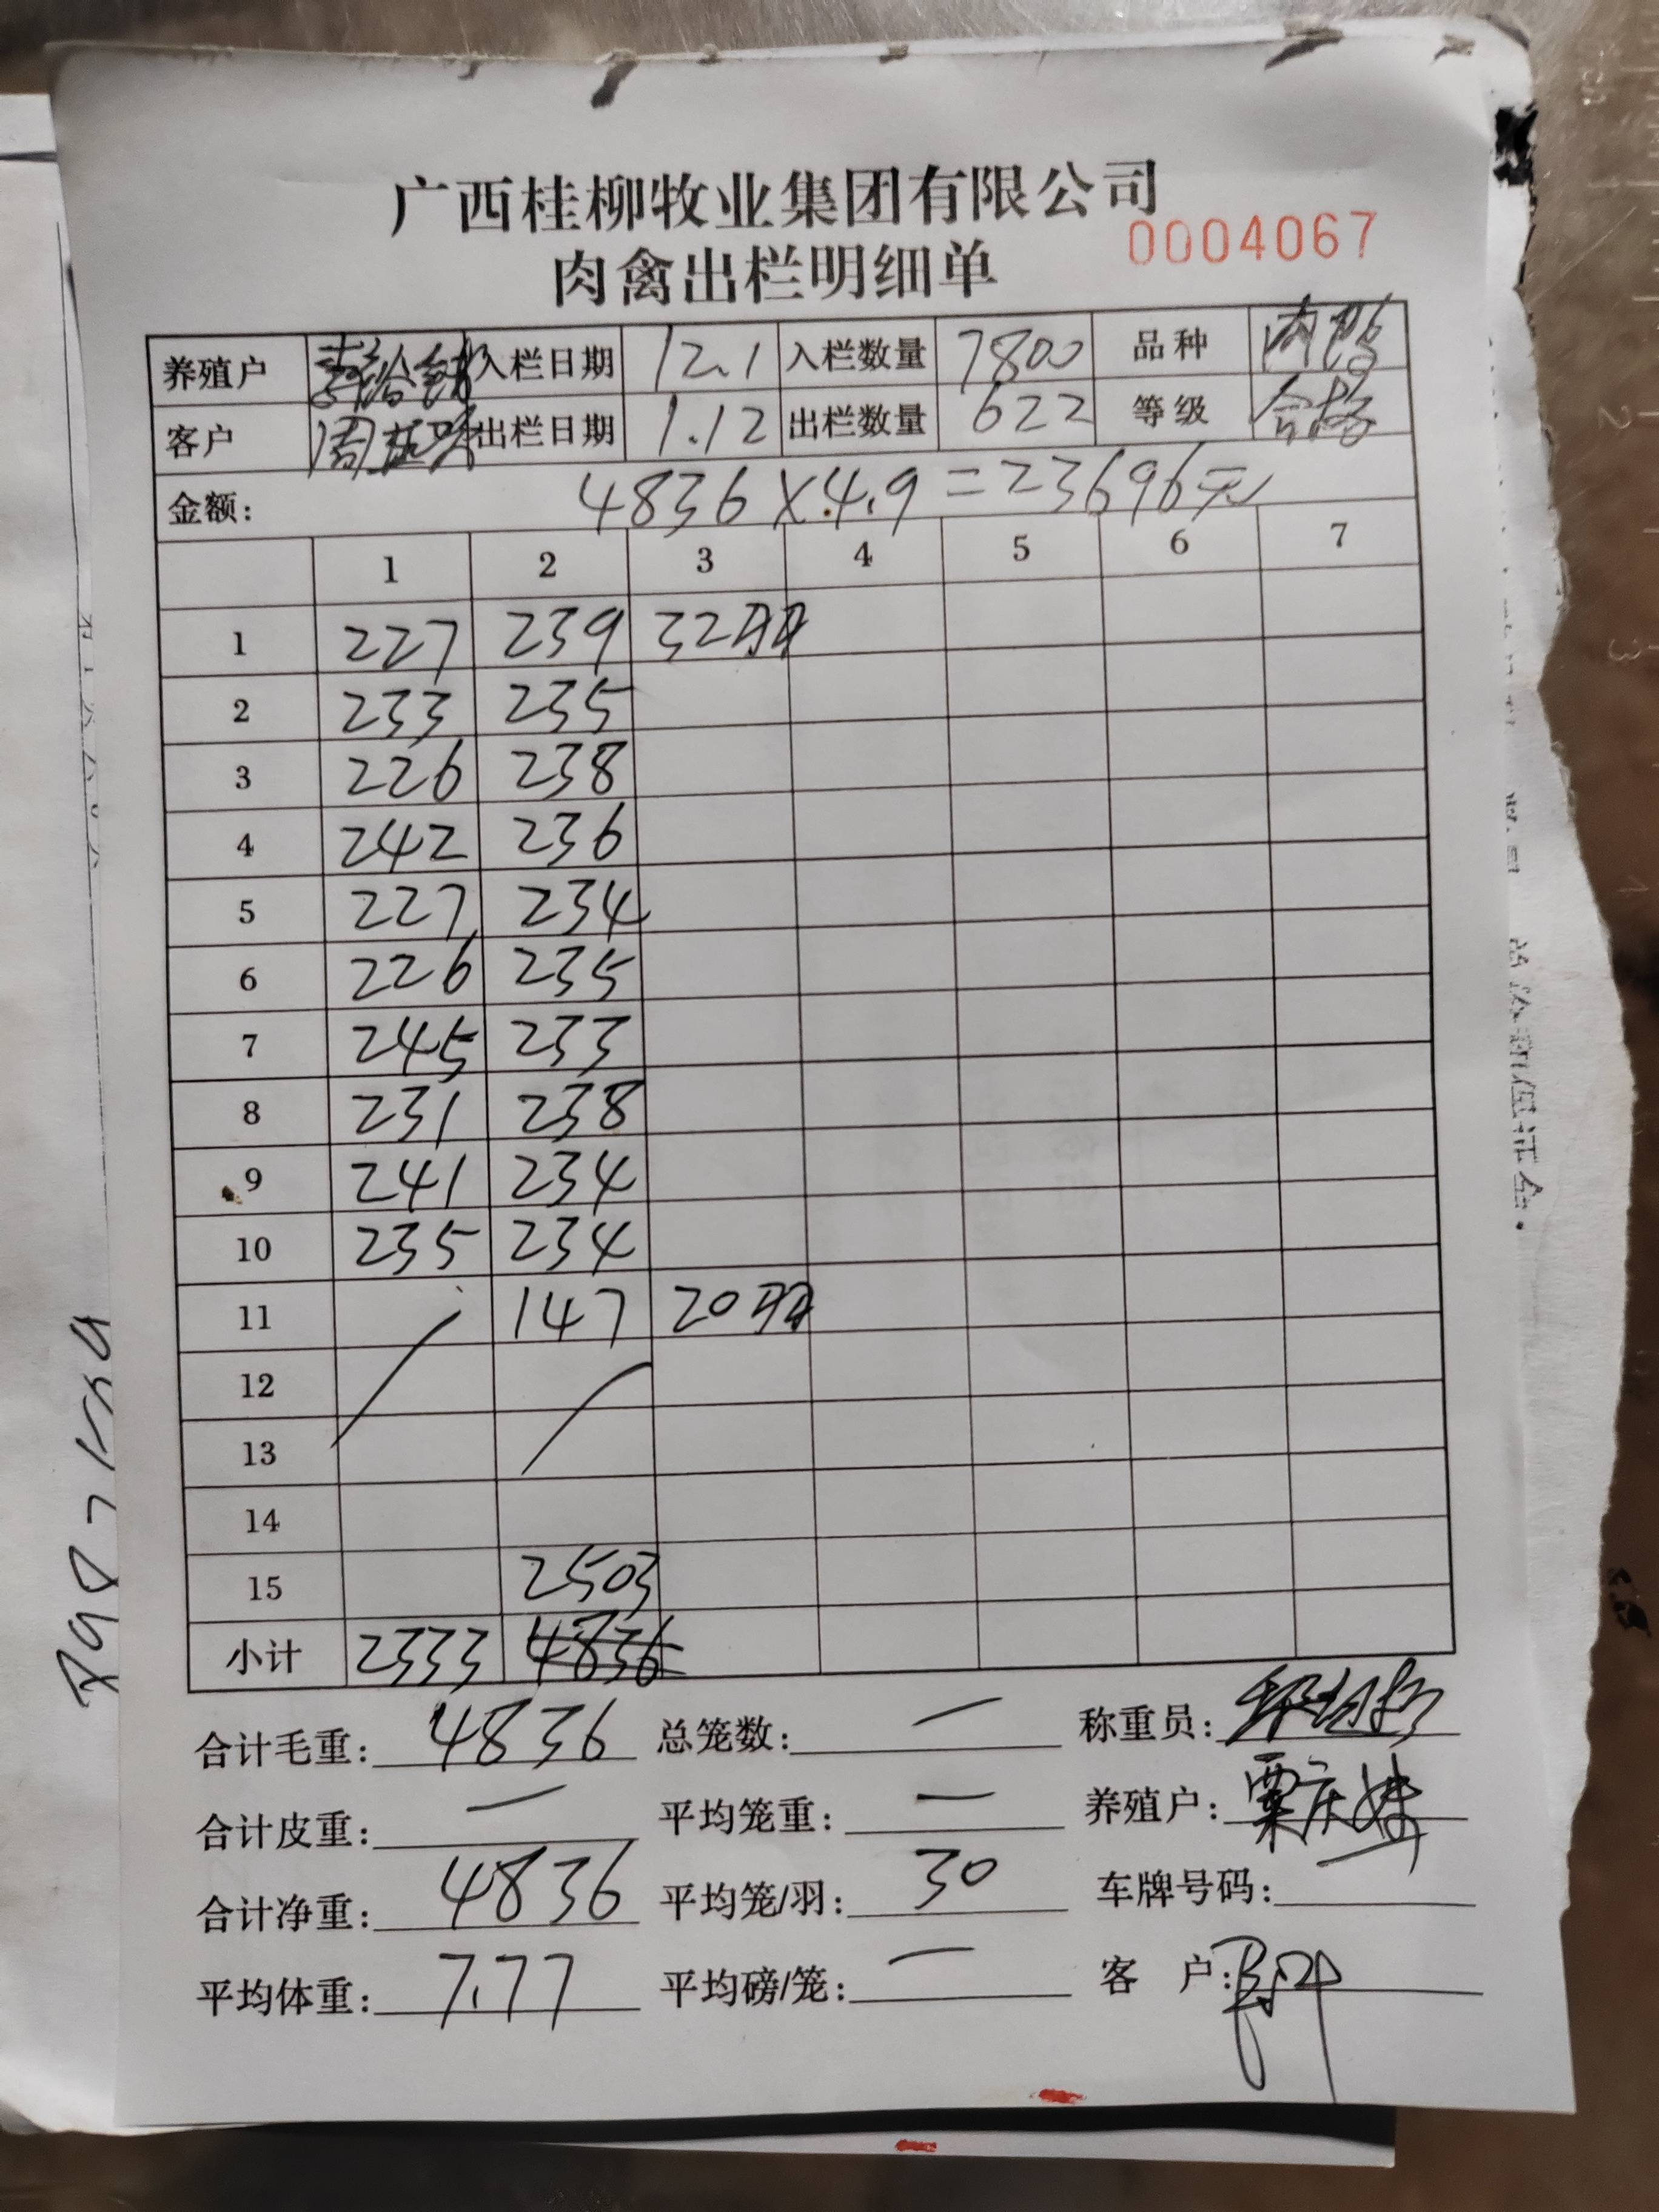 广西桂柳牧业集团有限公司
0004067
肉禽出栏明细单
养殖户 入栏日期 12.1 入栏数量 7800 品种 肉鸭
客户 出栏日期 1.12 出栏数量 622 等级 合格
金额: 4836×4.9=23696元
1 2 3 4 5 6 7
1 227 239 32羽
2 233 235
3 226 238
4 242 236
5 227 234
6 226 235
7 245 233
8 231 238
9 241 234
10 235 234
11 147 20羽
12
13
14
15 2503
小计 2333 4836
合计毛重: 4836 总笼数: — 称重员:
合计皮重: — 平均笼重: — 养殖户: 覃庆妹
合计净重: 4836 平均笼/羽: 30 车牌号码:
平均体重: 7.77 平均磅/笼: — 客 户: